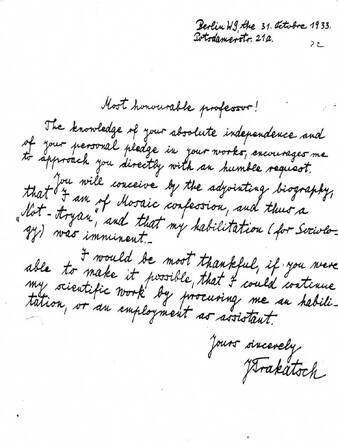 Berlin W9, the 31. Octobre 1933.
Potsdamerstr. 21a.
Most honourable professor!
The knowledge of your absolute independence and
of your personal pledge in your works, encourages me
to approach you directly with an humble request.
You will conceive by the adjointing biography,
that I am of Mosaic confession, and thus a
"Not-Aryan", and that my habilitation (for Sociolo-
gy) was imminent.-
I would be most thankful, if you were
able to make it possible, that I could continue
my scientific work by procuring me an habili-
tation, or an employment as assistant.
Yours sincerely